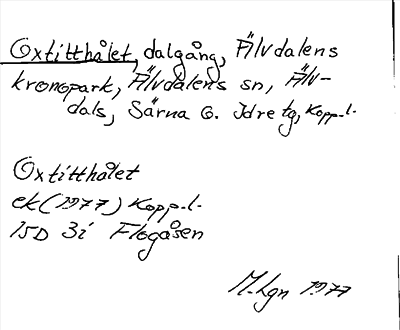 Oxtitthålet, dalgång, Älvdalens
kronopark, Älvdalens sn, Älv-
dals, Särna o. Idre tg, Kopp. l.
Oxtitthålet
ek (1977) Kopp. l.
15D 3i Flogåsen
M. Lgn 1977